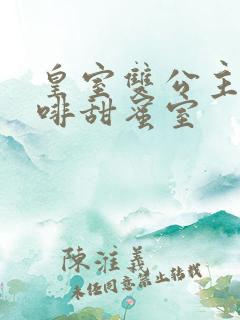 皇室雙公主
啡甜蜜室
陳淮義
未經同意禁止轉載